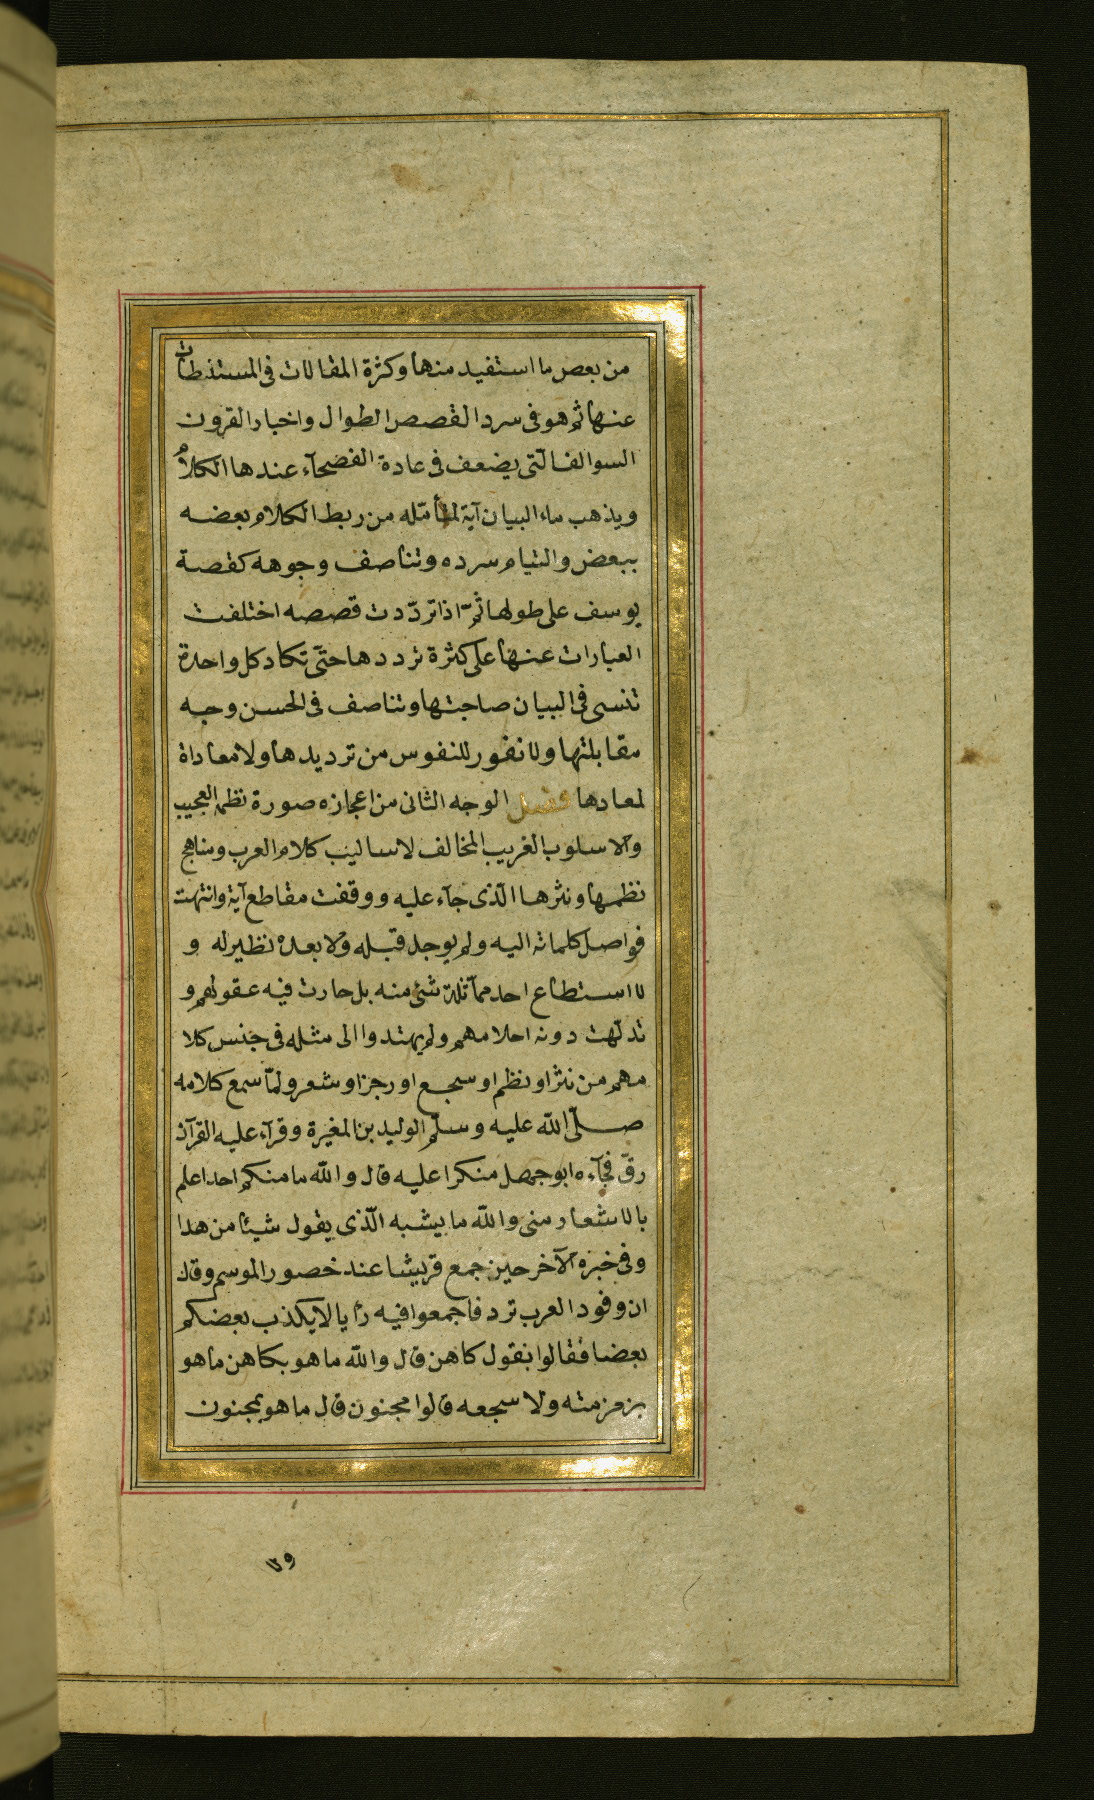 من بعض ما استفيد منها وكثرة المقالات فى المستنبطات
عنها ثم هو فى سرد القصص الطوال واخبار القرون
السوالف التى يضعف فى عادة الفصحآء عندها الكلام
ويذهب ماء البيان آية لمتأمّله من ربط الكلام بعضه
ببعض والتيام سرده وتناصف وجوهه كقصة
يوسف على طولها ثمّ اذا تردّدت قصصه اختلفت
العبارات عنها على كثرة ترددها حتّى تكاد كل واحدة
تنسى فى البيان صاحبتها وتناصف فى الحسن وجه
مقابلتها ولا نفور للنفوس من ترديدها ولا معاداة
لمعادها فصل الوجه الثانى من اعجازه صورة نظمه العجيب
والاسلوب الغريب المخالف لاساليب كلام العرب ومناهج
نظمها ونثرها الّذى جآء عليه ووقفت مقاطع آية وانتهت
فواصل كلماته اليه ولم يوجد قبله ولا بعده نظير له و
لا استطاع احد مماثلة شئ منه بل حارت فيه عقولهم و
تدلّهت دونه احلامهم ولم يهتدوا الى مثله فى جنس كلا
مهم من نثر او نظم او سجع او رجز او شعر ولمّا سمع كلامه
صلّى الله عليه وسلّم الوليد بن المغيرة وقرآء عليه القرآن
رقّ فجآءه ابوجهل منكرا عليه قال والله ما منكم احد اعلم
بالاشعار منى والله ما يشبه الّذى يقول شيئا من هدا
وفى خبره الآخر حين جمع قريشا عند خصور الموسم وقال
ان وفود العرب ترد فاجمعوا فيه رأيا لا يكذب بعضكم
بعضا فقالوا نقول كاهن قال والله ما هو بكاهن ما هو
بزمزمته ولا سجعه قالوا مجنون قال ما هو بمجنون
ولا